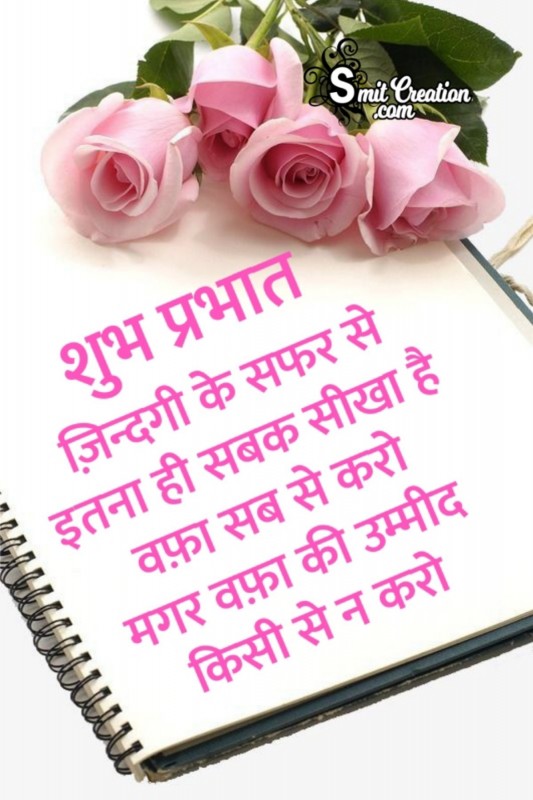 Smit Creation
.com
शुभ प्रभात
ज़िन्दगी के सफर से
इतना ही सबक सीखा है
वफ़ा सब से करो
मगर वफ़ा की उम्मीद
किसी से न करो